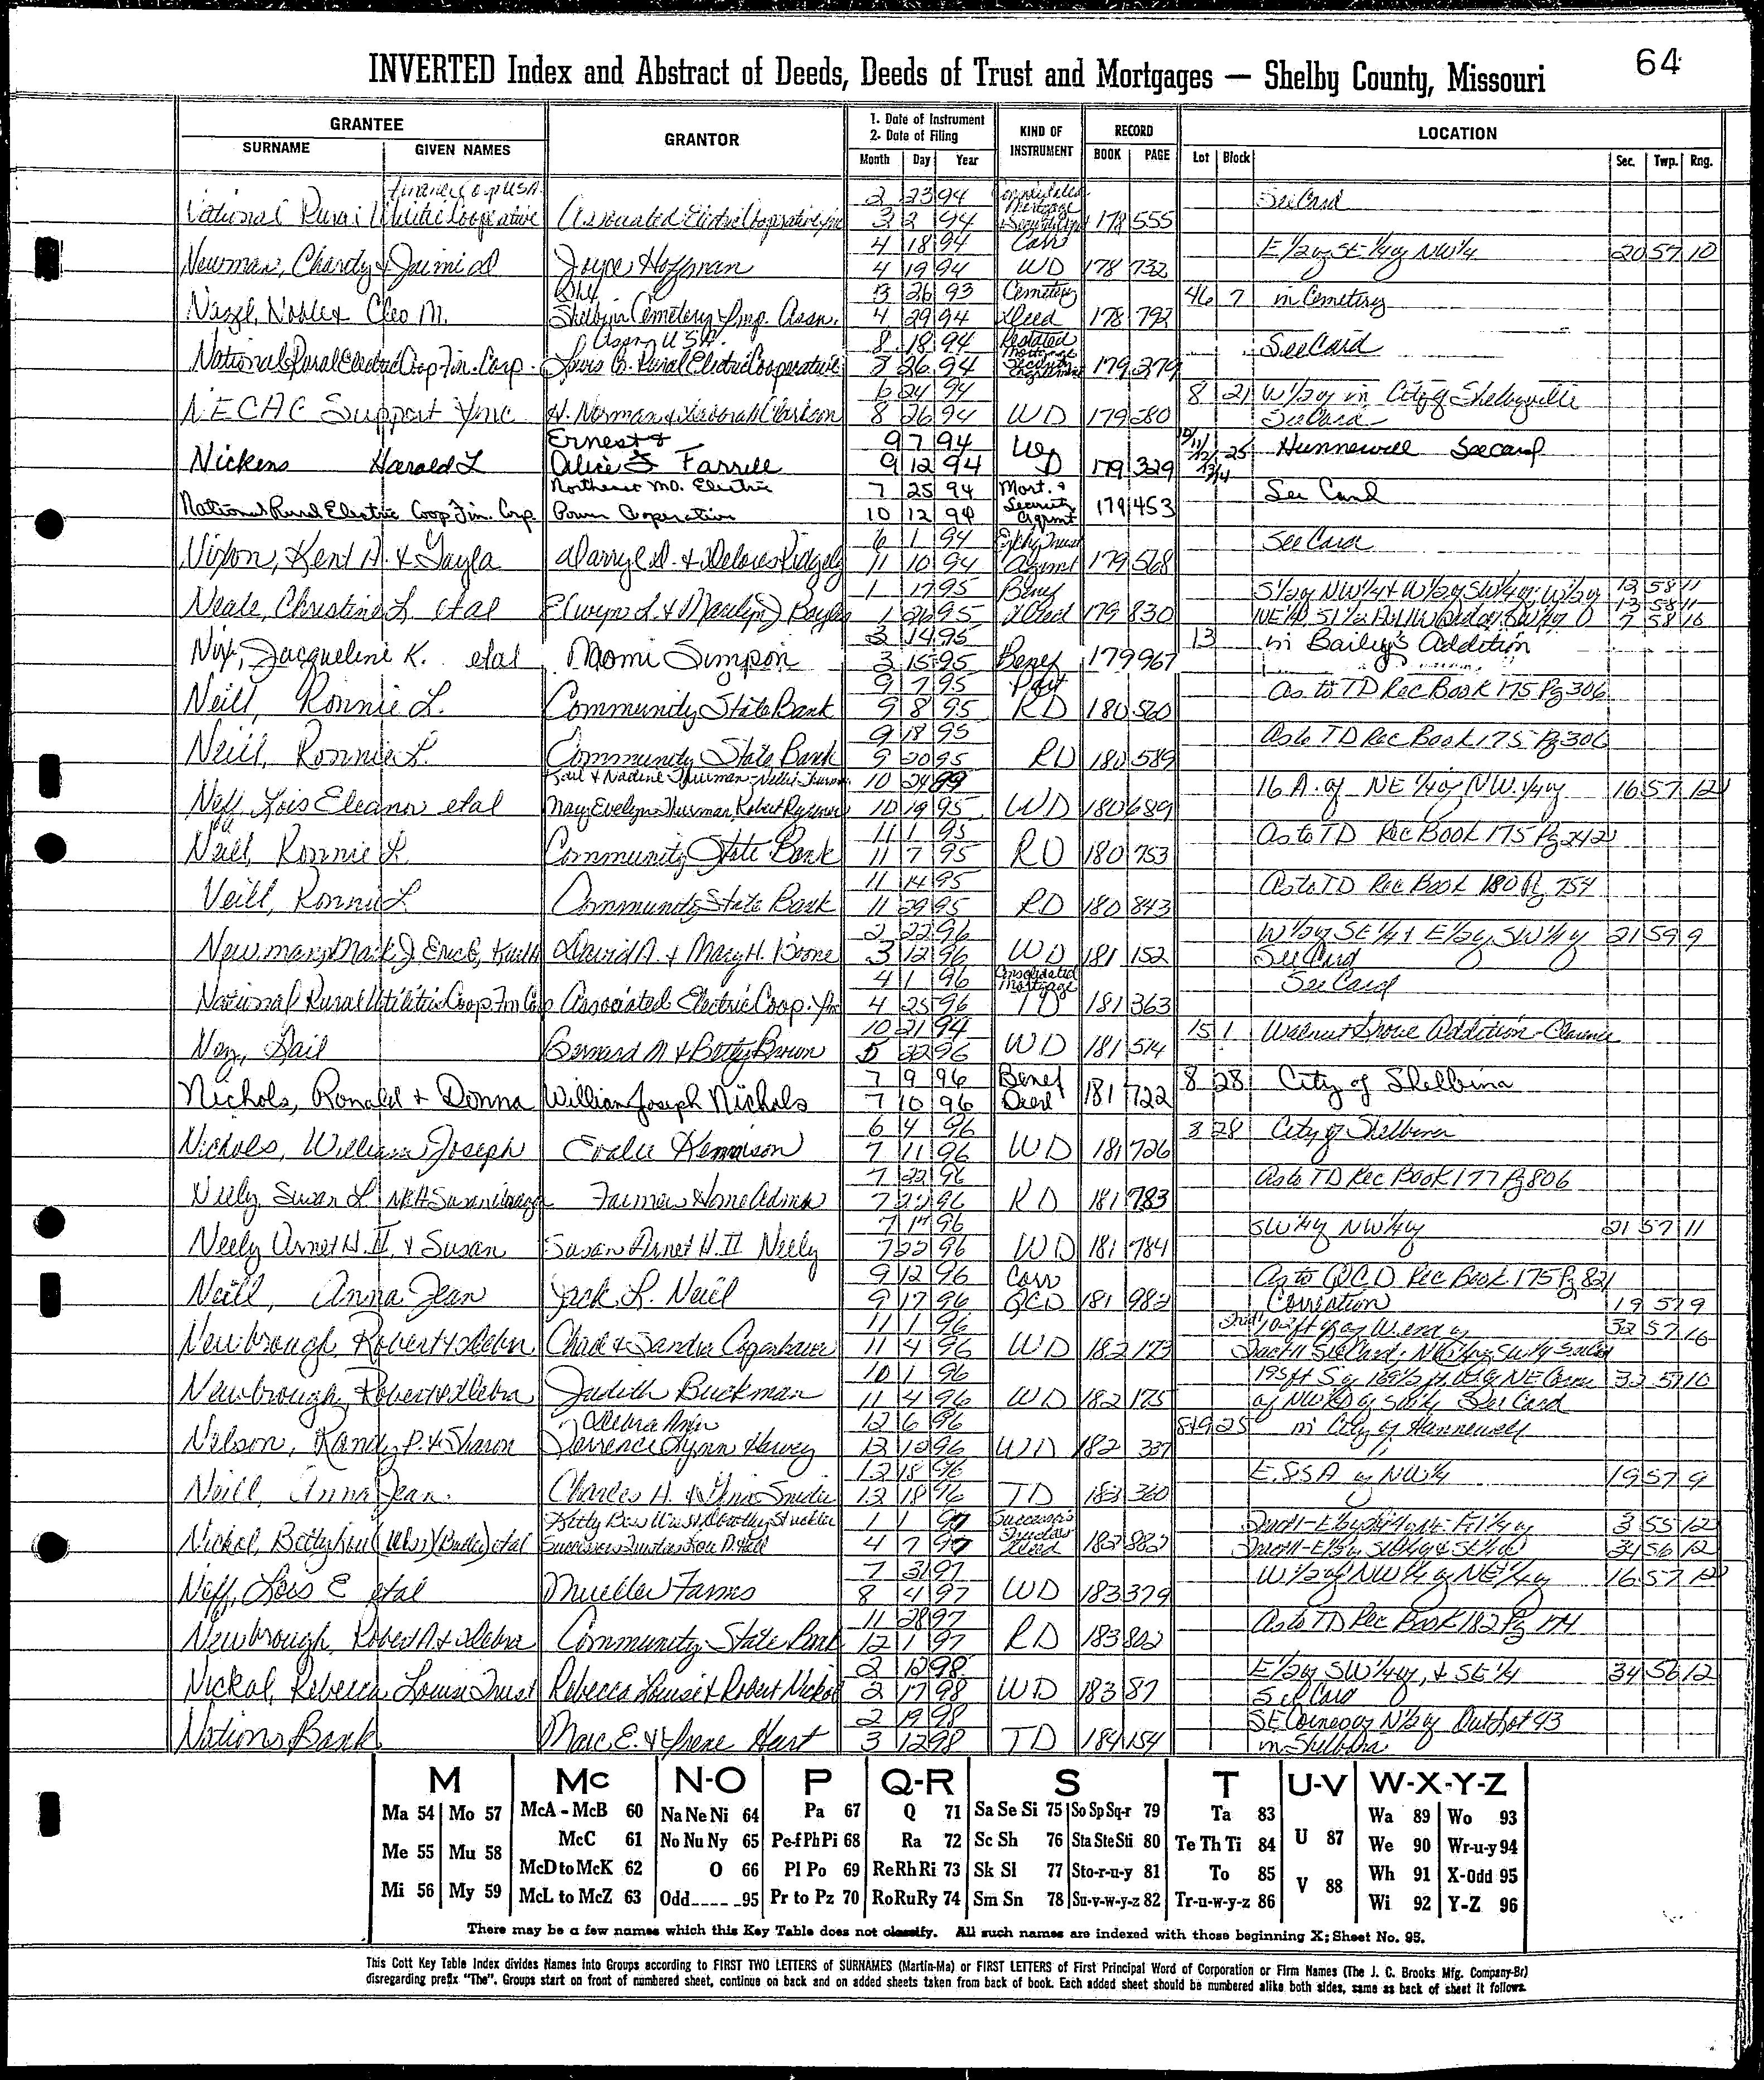 64
INVERTED Index and Abstract of Deeds, Deeds of Trust and Mortgages — Shelby County, Missouri
GRANTEE
SURNAME GIVEN NAMES
GRANTOR
1. Date of Instrument
2. Date of Filing
Month Day Year
KIND OF INSTRUMENT
RECORD
BOOK PAGE
LOCATION
Lot Block Sec. Twp. Rng.
Finance Corp USA 2 23 94 Consolidated Mortgage See Card
National Rural Utilities Cooperative Associated Electric Cooperative Inc 3 2 94 178 555
4 18 94 Corr E 1/2 of SE 1/4 of NW 1/4 20 57 10
Newman, Chardy & Jaimi Joyce Hoffman 4 19 94 WD 178 732
3 26 93 Cemetery 46 7 in Cemetery
Nagel, Noble & Cleo M. Shelbina Cemetery & Imp. Assn. 4 29 94 Deed 178 792
8 18 94 Restated Mortgage See Card
National Rural Electric Coop Fin. Corp. Lewis Co. Rural Electric Cooperative 8 26 94 179 279
6 24 94 8 21 W 1/2 of in City of Shelbyville
NECAC Support Inc H. Norman & Deborah Clarkson 8 26 94 WD 179 280 See Card
Ernest & 9 7 94 10/11/12/13/14 25 Hunnewell See card
Nickens Harold L Alice J Farrell 9 12 94 WD 179 329
Northeast MO. Electric 7 25 94 Mort. & Security Agrmt See Card
National Rural Electric Coop Fin. Corp. Power Cooperative 10 12 94 179 453
6 1 94 See Card
Nixon, Kent A. & Gayla Darryl D. & Delores Ridgely 11 10 94 Agrmt 179 568
1 17 95 Benef S 1/2 of NW 1/4 & W 1/2 of SW 1/4 of W 1/2 of 12 58 11
Neale, Christine L. etal Elwyn L. & Marilyn J Bayliss 1 26 95 Deed 179 830
3 14 95 13 in Bailey's Addition
Nix, Jacqueline K. etal Naomi Simpson 3 15 95 Benef 179 967
9 7 95 Part As to TD Rec Book 175 Pg 306
Neill, Ronnie L. Community State Bank 9 8 95 RD 180 560
9 18 95 As to TD Rec Book 175 Pg 306
Neill, Ronnie L. Community State Bank 9 20 95 RD 180 589
10 16 A. of NE 1/4 of NW 1/4 of 16 57 12
Neff, Lois Eleanor etal 10 19 95 WD 180 689
11 1 95 As to TD Rec Book 175 Pg 242
Neill, Ronnie L. Community State Bank 11 7 95 RD 180 753
11 14 95 As to TD Rec Book 180 Pg 754
Neill, Ronnie L. Community State Bank 11 29 95 RD 180 843
2 22 96 W 1/2 of SE 1/4 & E 1/2 of SW 1/4 of 21 59 9
Newman, Mark J, Eric C, Keith David A. & Mary H. Boone 3 12 96 WD 181 152 See Card
4 1 96 Consolidated Mortgage See Card
National Rural Utilities Coop Fin Corp Associated Electric Coop. Inc 4 25 96 TD 181 363
10 21 94 15 1 Walnut Grove Addition - Clarence
Noy, Gail Bernard M & Betty Brown 5 22 96 WD 181 514
7 9 96 Benef 8 28 City of Shelbina
Nichols, Ronald & Donna William Joseph Nichols 7 10 96 Deed 181 722
6 4 96 8 28 City of Shelbina
Nichols, William Joseph Evalie Kennison 7 11 96 WD 181 726
7 22 96 As to TD Rec Book 177 Pg 806
Neely, Susan L Farmers Home Admin 7 22 96 RD 181 783
7 17 96 SW 1/4 of NW 1/4 of 21 57 11
Neely Arnet H. II & Susan Susan Arnet H. II Neely 7 22 96 WD 181 784
9 12 96 Corr As to QCD Rec Book 175 Pg 821
Neill, Anna Jean Jack L. Neill 9 17 96 QCD 181 982 Correction 19 57 9
11 1 96 32 57 10
Newbrough, Robert & Debra Chad & Sandra Coperhaver 11 4 96 WD 182 173
10 1 96 32 57 10
Newbrough, Robert & Debra Judith Buckman 11 4 96 WD 182 175 of NW 1/4 of SW 1/4 See Card
Debra Ann 12 6 96 8&9 25 in City of Hunnewell
Nelson, Randy P. & Sharon Terrence Lynn Harvey 12 12 96 WD 182 337
12 18 96 E.85A of NW 1/4 19 57 9
Neill, Anna Jean Charles H. & Snider 12 18 96 TD 182 360
1 1 97 Successors Trustee 3 55 12
Nickol, Betty Lou etal 4 7 97 Deed 182 882 34 56 12
7 31 97 W 1/2 of NW 1/4 of NE 1/4 of 16 57 12
Neff, Lois E etal Mueller Farms 8 4 97 WD 183 379
11 28 97 As to TD Rec Book 182 Pg 174
Newbrough, Robert A & Debra Community State Bank 12 1 97 RD 183 802
2 12 98 E 1/2 of SW 1/4 of, & SE 1/4 34 56 12
Nickol, Rebecca Louise Trust Rebecca Louise & Robert Nickol 2 17 98 WD 183 87 See Card
2 19 98 SE Corner of N 1/2 of Outlot 43
Nations Bank Marc E. & Irene Hurt 3 12 98 TD 184 154 in Shelbina
M Mc N-O P Q-R S T U-V W-X-Y-Z
Ma 54 Mo 57 McA - McB 60 Na Ne Ni 64 Pa 67 Q 71 Sa Se Si 75 So Sp Sq-r 79 Ta 83 U 87 Wa 89 Wo 93
Me 55 Mu 58 McC 61 No Nu Ny 65 Pe-f Ph Pi 68 Ra 72 Sc Sh 76 Sta Ste Sti 80 Te Th Ti 84 We 90 Wr-u-y 94
McD to McK 62 O 66 Pl Po 69 Re Rh Ri 73 Sk Sl 77 Sto-r-u-y 81 To 85 V 88 Wh 91 X-Odd 95
Mi 56 My 59 McL to McZ 63 Odd 95 Pr to Pz 70 Ro Ru Ry 74 Sm Sn 78 Su-v-w-y-z 82 Tr-u-w-y-z 86 Wi 92 Y-Z 96
There may be a few names which this Key Table does not classify. All such names are indexed with those beginning X; Sheet No. 95.
This Cott Key Table Index divides Names into Groups according to FIRST TWO LETTERS of SURNAMES (Martin-Ma) or FIRST LETTERS of First Principal Word of Corporation or Firm Names (The J. C. Brooks Mfg. Company-Br)
disregarding prefix "The". Groups start on front of numbered sheet, continue on back and on added sheets taken from back of book. Each added sheet should be numbered alike both sides, same as back of sheet it follows.